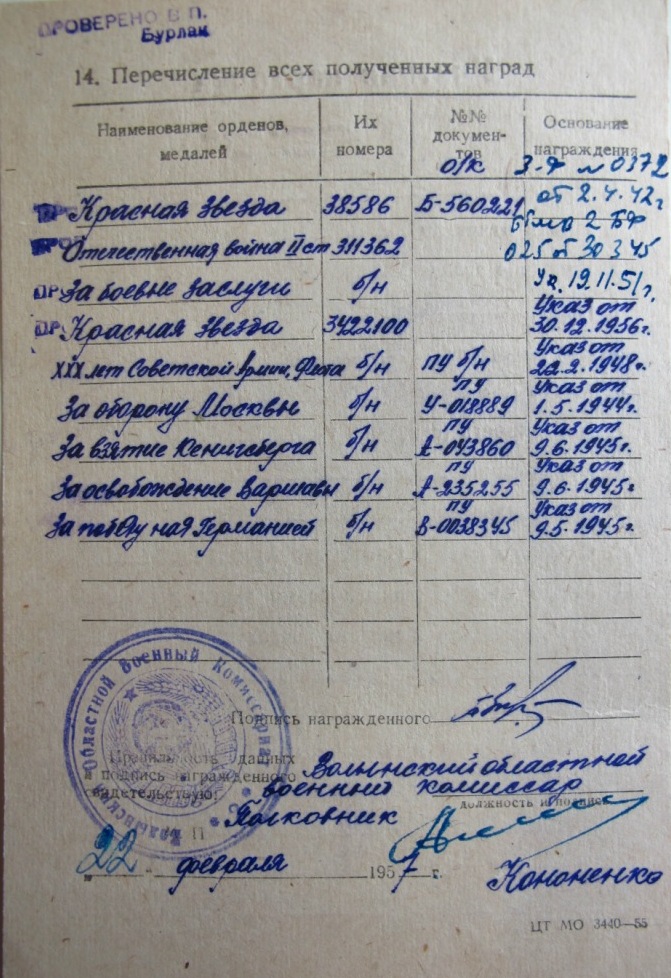 ПРОВЕРЕНО В П.
Бурлак
14. Перечисление всех полученных наград
Наименование орденов, медалей
Их номера
№№ документов
Основание награждения
о/к
З-Ф № 0372
Красная Звезда 38586 Б-560221 от 2.4.42 г.
2 БФ
Отечественная война II ст 311362 025 от 30 3 45
За боевые заслуги б/н Ук. 19.11.51 г.
Указ от
Красная Звезда 3422100 30.12.1956 г.
Указ от
XXX лет Советской Армии, Флота б/н ПУ б/н 22.2.1948 г.
ПУ Указ от
За оборону Москвы б/н У-018889 1.5.1944 г.
ПУ Указ от
За взятие Кенигсберга б/н А-043860 9.6.1945 г.
ПУ Указ от
За освобождение Варшавы б/н А-235255 9.6.1945 г.
ПУ Указ от
За победу над Германией б/н В-0038345 9.5.1945 г.
Подпись награжденного
Правильность данных
и подпись награжденного
свидетельствую:
Волынский областной
военный комиссар
должность и подпись
Полковник
М П
„22" февраля 1957 г.
Кононенко
Областной Военный Комиссариат
ЦТ МО 3440—55